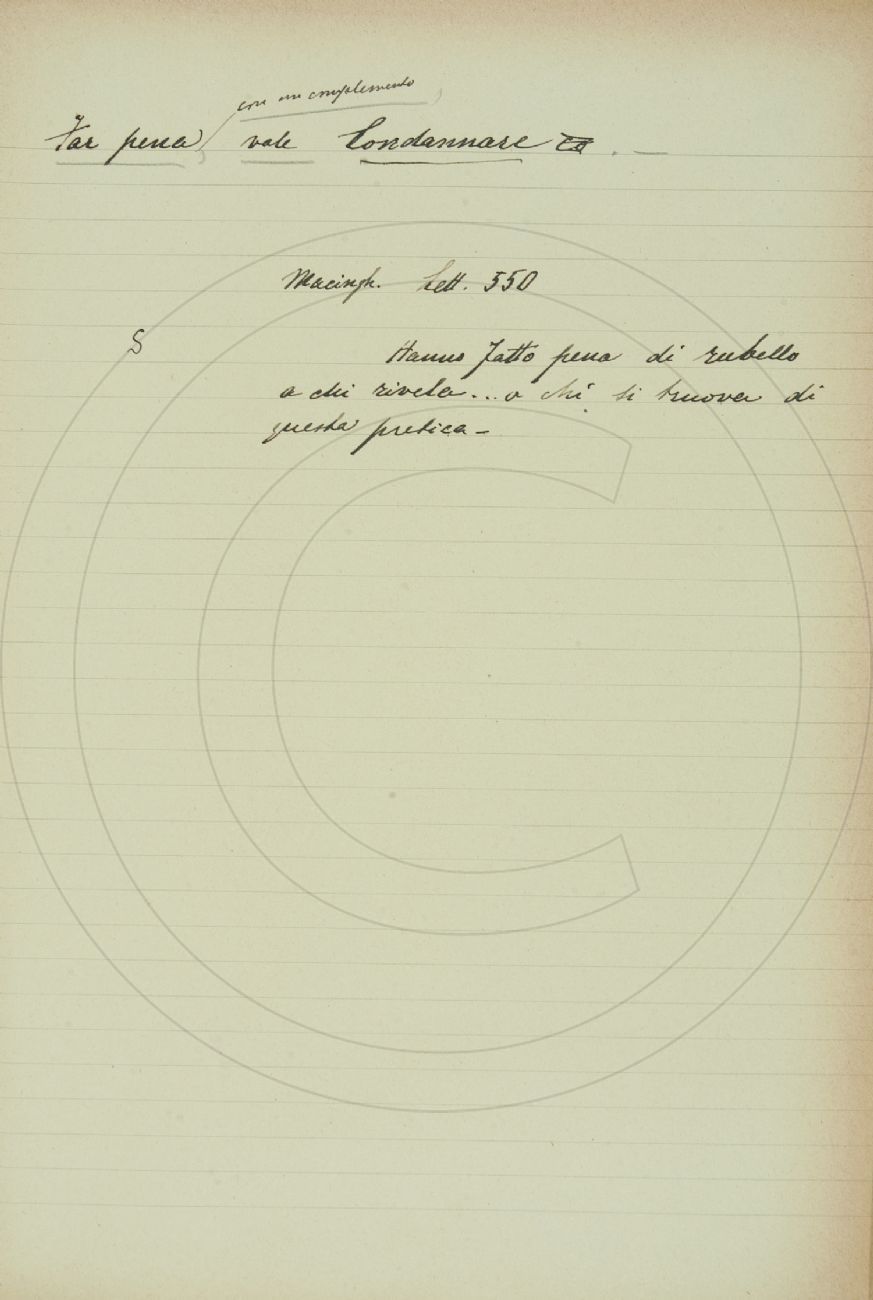 con un complemento
Far pena vale Condannare
Macingh. Lett. 550
S
Hanno fatto pena di rubello
a chi rivela... o chi si truova di
questa pretica -